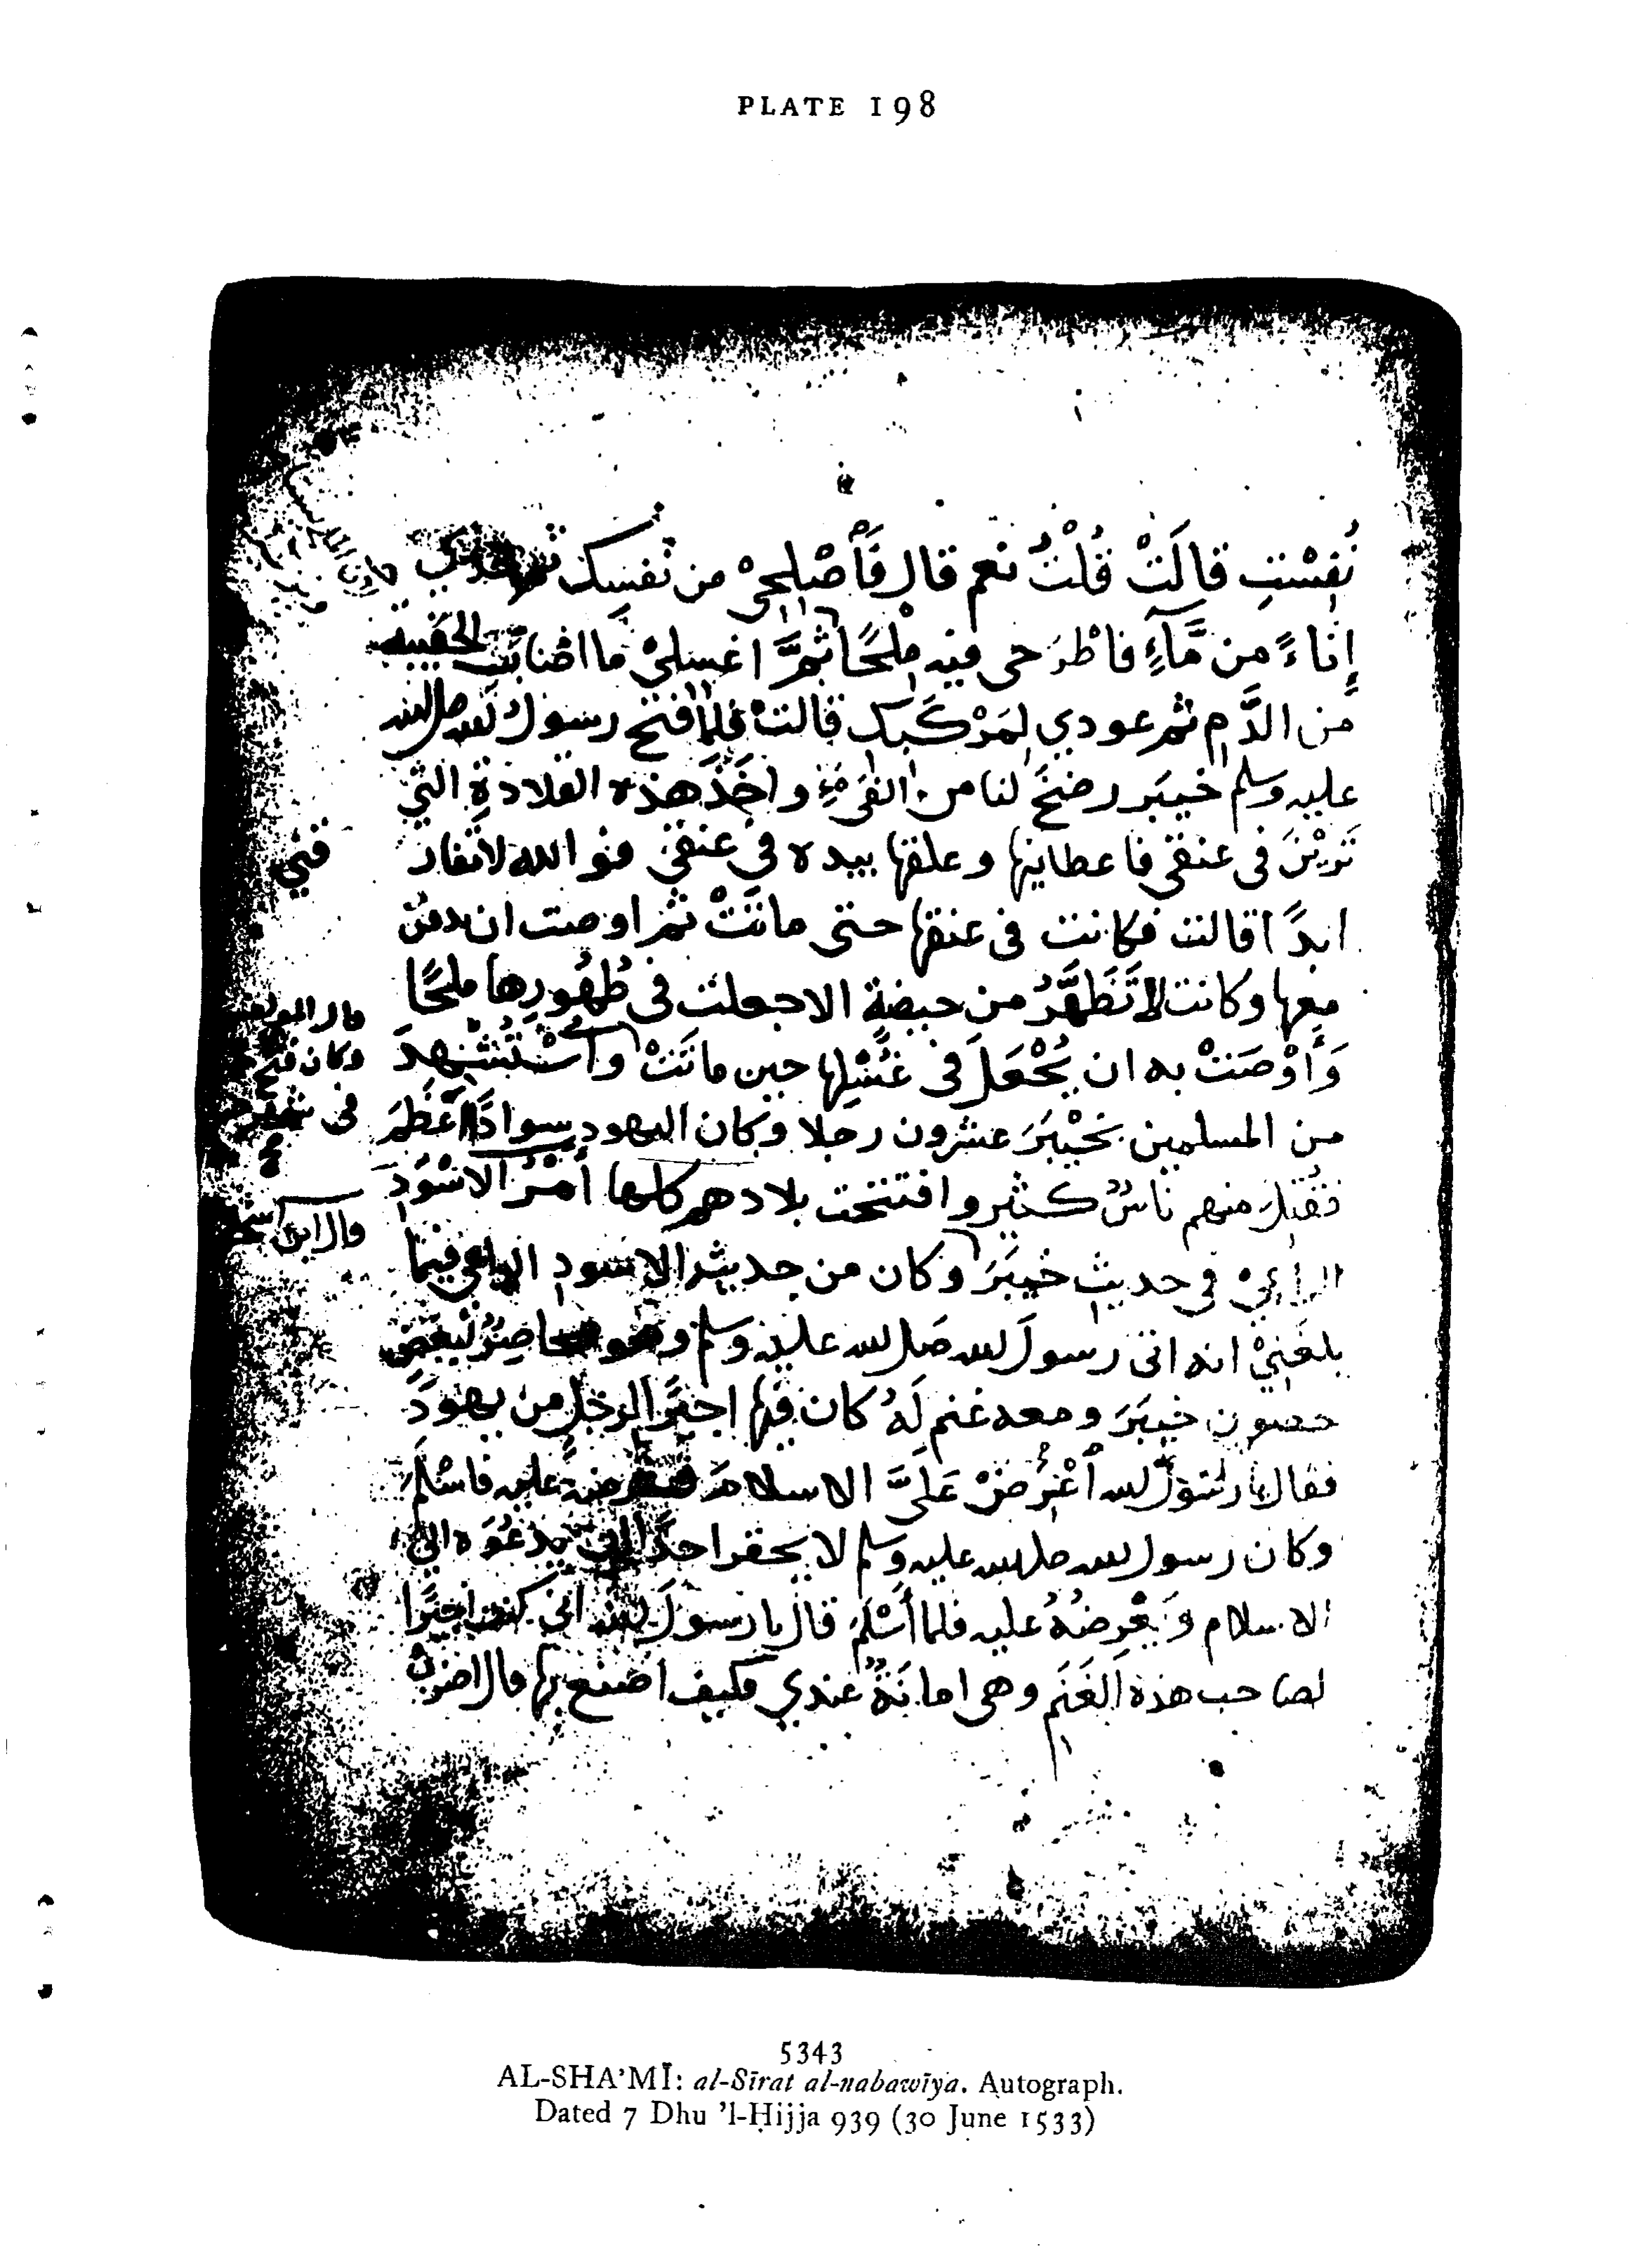 PLATE 198
نُفِسْتِ قالَتْ قُلْتُ نعم قال فَأَصْلِحِىْ من نَفْسِكِ ثم خذي
إِنَاءً من مَّآءٍ فاطْرَحى فيه مِلْحًا ثُمَّ اغسلىْ ما اصَابَ الحَقِيبة
من الدَّمِ ثم عودي لِمَرْكَبِكِ قالت فلما فتح رسول الله صلى الله
عليه وسلم خيبَر رضخَ لنا من الفَىْءِ واخَذَ هذه القلادةِ التي
تَرَيْنَ فى عنقى فاعطانيها وعلقها بيده فى عنقى فوالله لا تفارقني
ابدًا قالت فكانت فى عنقها حتى ماتَتْ ثم اوصت ان تدفن
معها وكانت لا تَطَهَّرُ من حيضةٍ الا جعلت فى طُهُورِها مِلحًا
وَأَوْصَتْ به ان يُجْعَلَ فى غُسْلِها حين ماتَتْ وَاسْتُشْهِدَ
من المسلمين بخَيْبَرَ عشرون رجلا وكان اليهود سوادًا أَعْظَمَ
فقُتِلَ منهم ناسٌ كثير وافتتحت بلادهم كلها أَمْرُ الاسْوَدِ
الراعِىْ فى حديث خيبَرَ وكان من حديث الاسود الراعى فيما
بلغَنِىْ انه اتى رسولَ الله صَلى الله عليه وسلم وهو محاصِرٌ لِبَعْضِ
حصون خيبَرَ ومعه غنم لَهُ كان فيها اجيرًا لرجل من يهودَ
فقال يا رَسُولَ الله أَعْرِضْ عَلَىَّ الاسلامَ فعرضه عليه فاسْلَمَ
وكان رسول الله صلى الله عليه وسلم لا يحقر احدًا ان يدعُوَه الى
الاسلام وَيَعْرِضَهُ عليه فلما أَسْلَمَ قال يا رسولَ الله انى كنت اجيرًا
لصاحب هذه الغَنَمِ وهى امانَةٌ عندي فكيف اصنع بها قال اضرب
قال المولف
وكان فتح
خيبر
فى صفر
قال ابن اسحاق
5343
AL-SHA'MĪ: al-Sīrat al-nabawīya. Autograph.
Dated 7 Dhu 'l-Ḥijja 939 (30 June 1533)